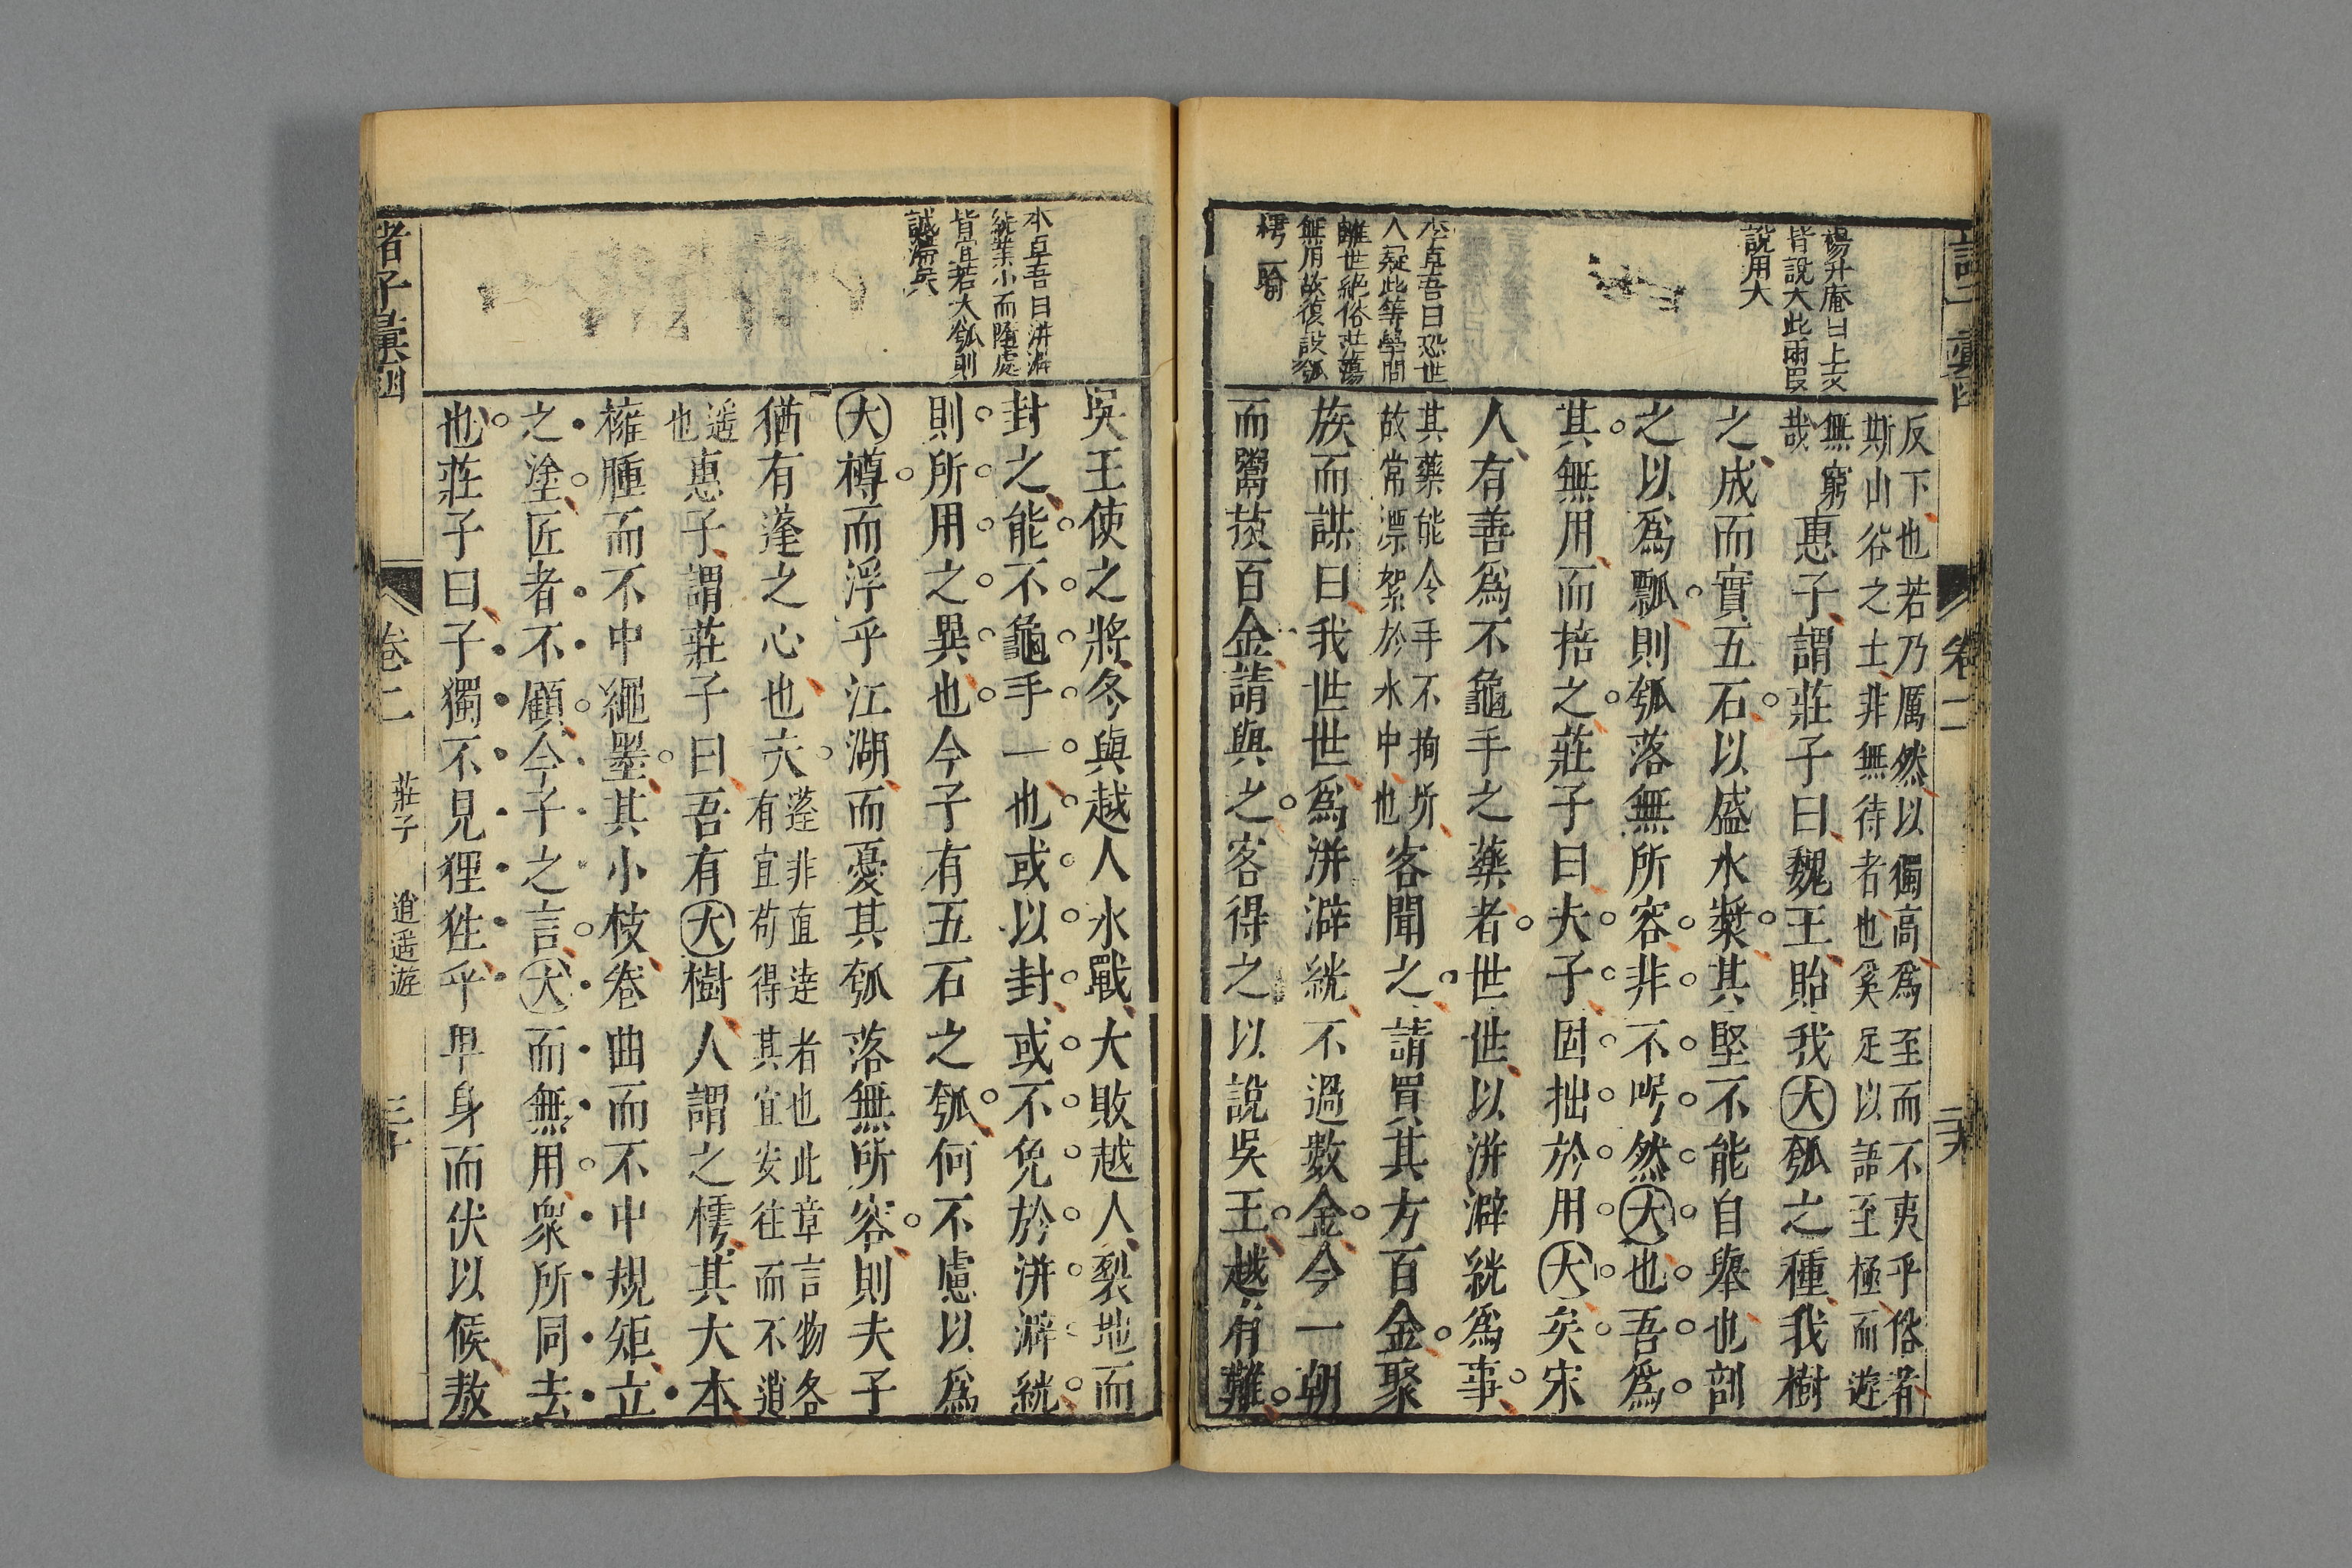 楊升庵曰上文
皆說大此兩段
說用大
李卓吾曰恐世
人疑此等學問
離世絕俗茫蕩
無用故復設瓠
樗二喻
反下也若乃厲然以獨高爲至而不夷乎俗者
斯山谷之士非無待者也奚足以語至極而遊
無窮
哉
惠子謂莊子曰魏王貽我大瓠之種我樹
之成而實五石以盛水漿其堅不能自舉也剖
之以爲瓢則瓠落無所容非不呺然大也吾爲
其無用而掊之莊子曰夫子固拙於用大矣宋
人有善爲不龜手之藥者世世以洴澼絖爲事
其藥能令手不拘坼
故常漂絮於水中也
客聞之請買其方百金聚
族而謀曰我世世爲洴澼絖不過數金今一朝
而鬻技百金請與之客得之以說吳王越有難
卷二
李卓吾曰洴澼
絖業小而隨處
皆宜若大瓠則
誠濩落矣
吳王使之將冬與越人水戰大敗越人裂地而
封之能不龜手一也或以封或不免於洴澼絖
則所用之異也今子有五石之瓠何不慮以爲
大樽而浮乎江湖而憂其瓠落無所容則夫子
猶有蓬之心也夫
蓬非直達者也此章言物各
有宜苟得其宜安往而不逍
遥
也
惠子謂莊子曰吾有大樹人謂之樗其大本
擁腫而不中繩墨其小枝卷曲而不中規矩立
之塗匠者不顧今子之言大而無用衆所同去
也莊子曰子獨不見狸狌乎卑身而伏以候敖
諸子彙函
卷二
莊子
逍遥遊
三十